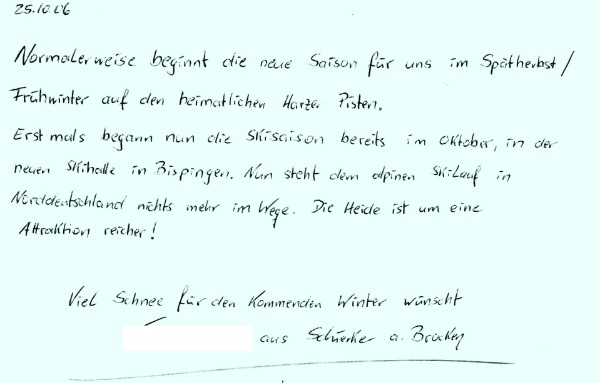 25.10.06
Normalerweise beginnt die neue Saison für uns im Spätherbst/
Frühwinter auf den heimatlichen Harzer Pisten.
Erstmals begann nun die Skisaison bereits im Oktober, in der
neuen Skihalle in Bispingen. Nun steht dem alpinen Skilauf in
Norddeutschland nichts mehr im Wege. Die Heide ist um eine
Attraktion reicher!
Viel Schnee für den kommenden Winter wünscht
aus Schierke a. Brocken